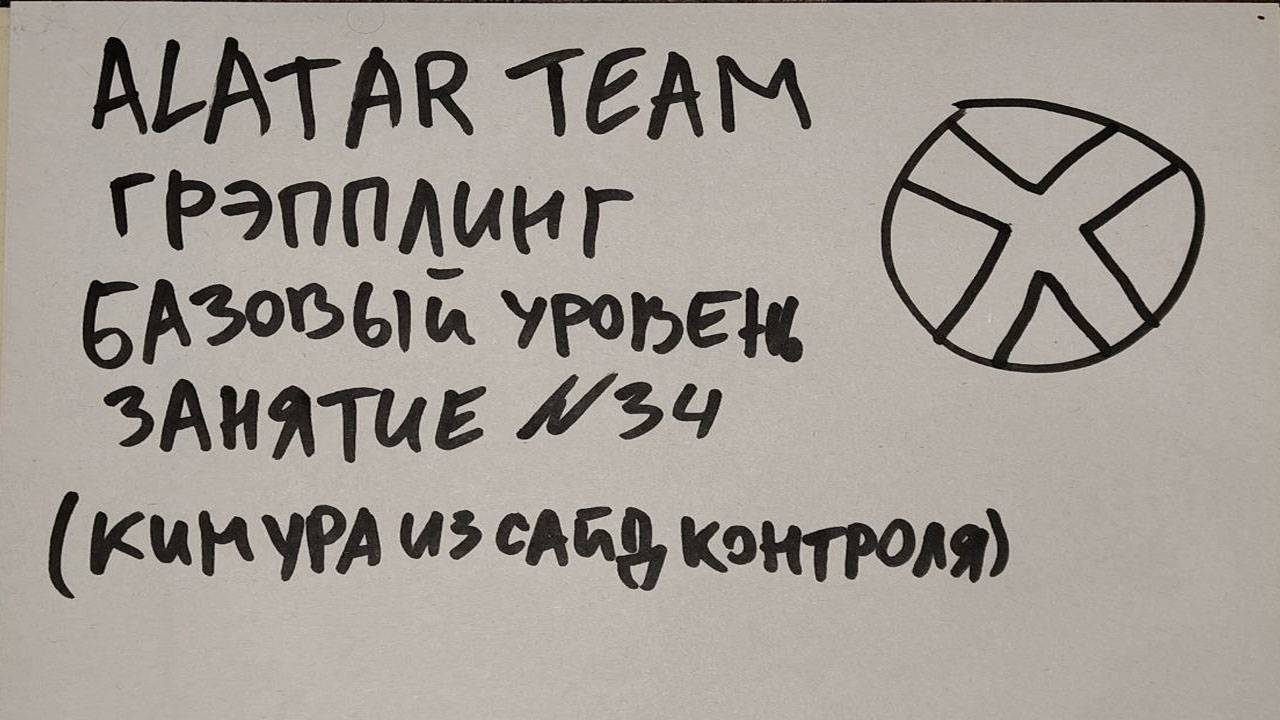 ALATAR TEAM
ГРЭППЛИНГ
БАЗОВЫЙ УРОВЕНЬ
ЗАНЯТИЕ №34
(КИМУРА ИЗ САЙД КОНТРОЛЯ)